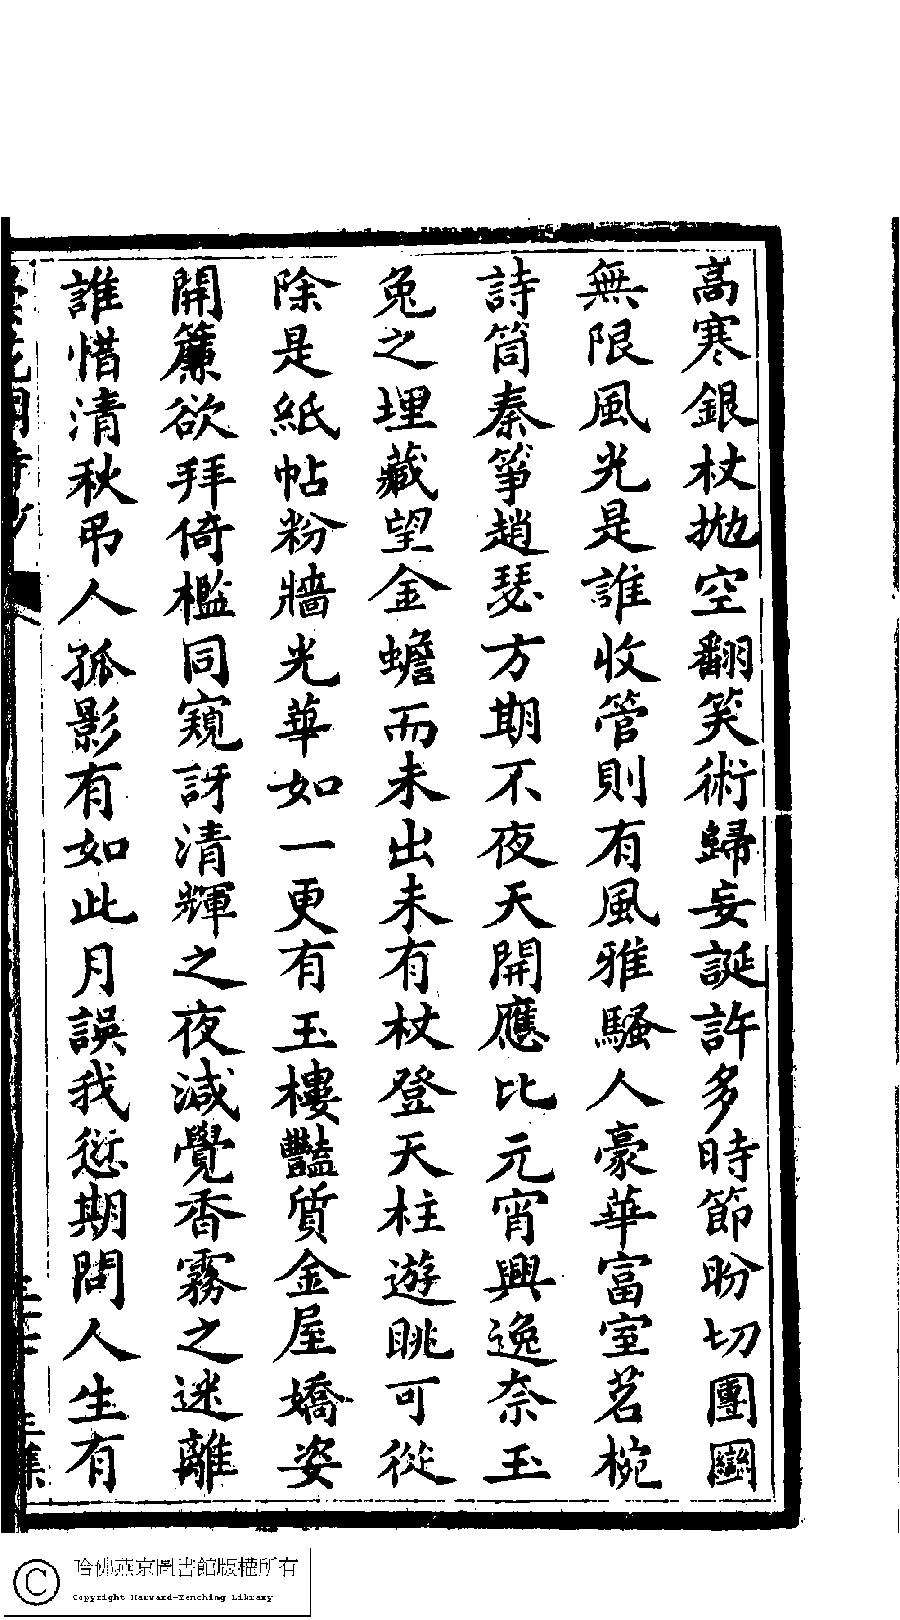 高寒銀杖拋空翻笑術歸妄誕許多時節盼切團圞
無限風光是誰收管則有風雅騷人豪華富室茗椀
詩筒秦箏趙瑟方期不夜天開應比元宵興逸奈玉
兔之埋藏望金蟾而未出未有杖登天柱遊眺可從
除是紙帖粉牆光華如一更有玉樓豔質金屋嬌姿
開簾欲拜倚檻同窺訝清輝之夜減覺香霧之迷離
誰惜清秋弔人孤影有如此月誤我愆期問人生有
哈佛燕京圖書館版權所有
Copyright Harvard-Yenching Library